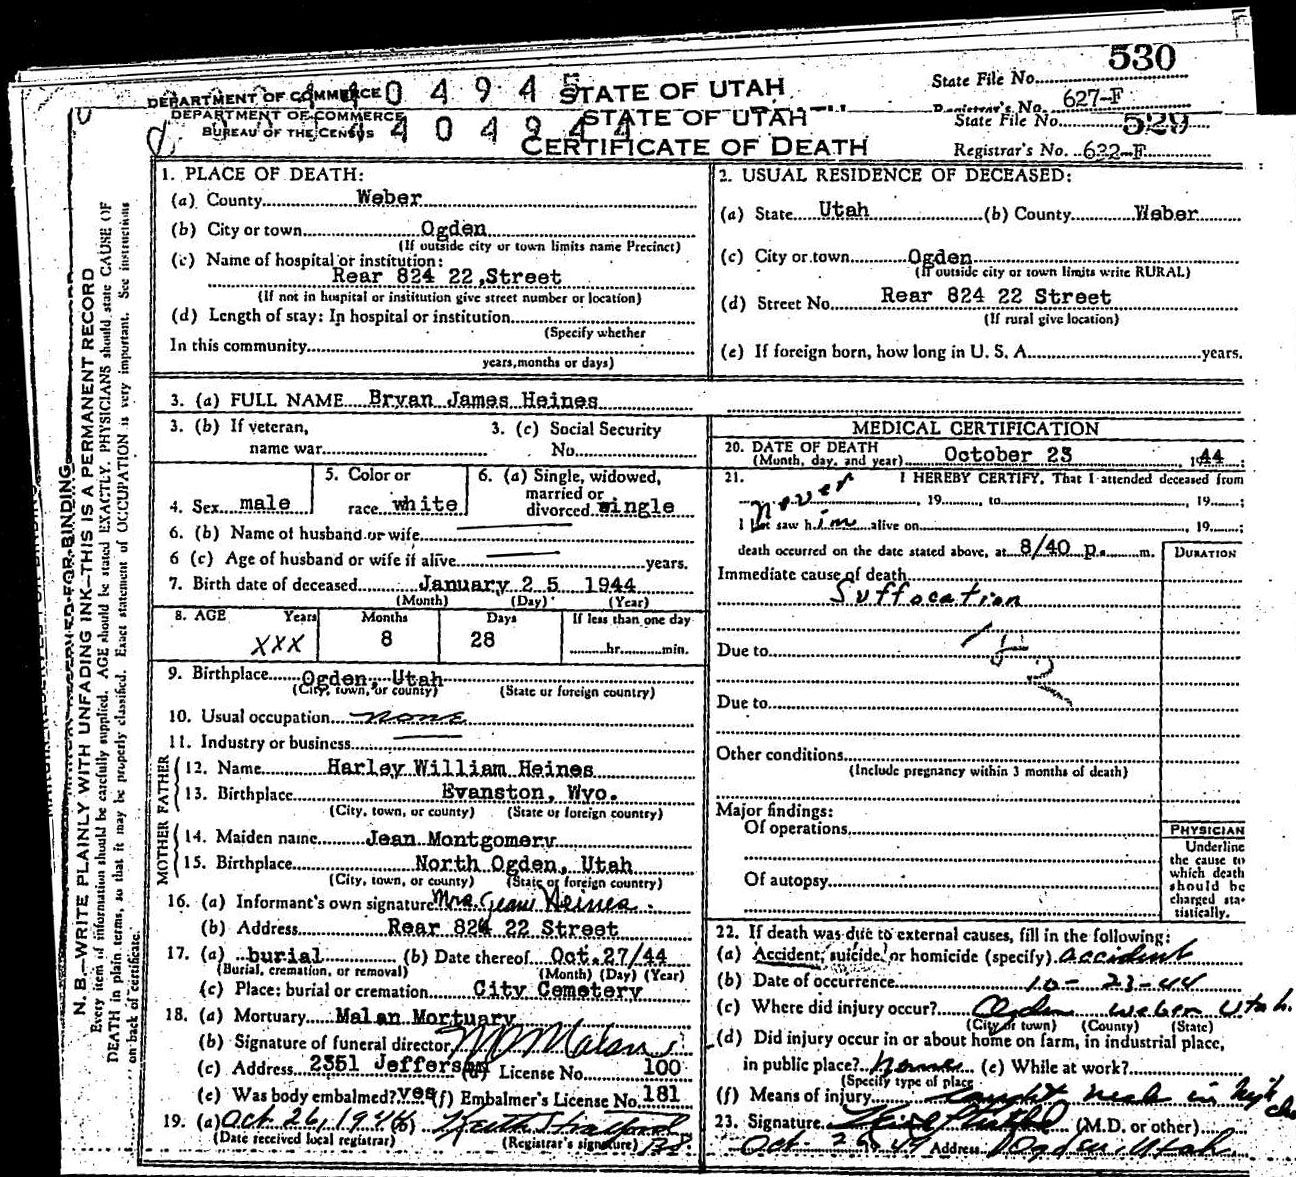 530
State File No.
DEPARTMENT OF COMMERCE
STATE OF UTAH
Registrar's No. 627-F
DEPARTMENT OF COMMERCE
STATE OF UTAH
State File No. 529
BUREAU OF THE CENSUS
CERTIFICATE OF DEATH
Registrar's No. 622-F
N. B.—WRITE PLAINLY WITH UNFADING INK—THIS IS A PERMANENT RECORD
Every item of information should be carefully supplied. AGE should be stated EXACTLY. PHYSICIANS should state CAUSE OF
DEATH in plain terms, so that it may be properly classified. Exact statement of OCCUPATION is very important. See instructions
on back of certificate.
1. PLACE OF DEATH:
(a) County Weber
(b) City or town Ogden
(If outside city or town limits name Precinct)
(c) Name of hospital or institution:
Rear 824 22 Street
(If not in hospital or institution give street number or location)
(d) Length of stay: In hospital or institution
(Specify whether
In this community
years, months or days)
2. USUAL RESIDENCE OF DECEASED:
(a) State Utah (b) County Weber
(c) City or town Ogden
(If outside city or town limits write RURAL)
(d) Street No. Rear 824 22 Street
(If rural give location)
(e) If foreign born, how long in U. S. A. years.
3. (a) FULL NAME Bryan James Heines
3. (b) If veteran, name war
3. (c) Social Security No.
4. Sex male
5. Color or race white
6. (a) Single, widowed, married or divorced single
6. (b) Name of husband or wife
6 (c) Age of husband or wife if alive years.
7. Birth date of deceased January 25 1944
(Month) (Day) (Year)
8. AGE Years Months Days If less than one day
XXX 8 28 hr. min.
9. Birthplace Ogden, Utah
(City, town, or county) (State or foreign country)
10. Usual occupation none
11. Industry or business
FATHER
12. Name Harley William Heines
13. Birthplace Evanston, Wyo.
(City, town, or county) (State or foreign country)
MOTHER
14. Maiden name Jean Montgomery
15. Birthplace North Ogden, Utah
(City, town, or county) (State or foreign country)
16. (a) Informant's own signature Mrs. Jean Heines
(b) Address Rear 824 22 Street
17. (a) burial (b) Date thereof Oct. 27/44
(Burial, cremation, or removal) (Month) (Day) (Year)
(c) Place: burial or cremation City Cemetery
18. (a) Mortuary Malan Mortuary
(b) Signature of funeral director Malan
(c) Address 2351 Jefferson (d) License No. 100
(e) Was body embalmed? yes (f) Embalmer's License No. 181
19. (a) Oct 26, 1944 (b)
(Date received local registrar) (Registrar's signature)
MEDICAL CERTIFICATION
20. DATE OF DEATH
(Month, day, and year) October 23 1944;
21. I HEREBY CERTIFY, That I attended deceased from
never , 19 to , 19 ;
I last saw him alive on , 19 ;
death occurred on the date stated above, at 8/40 p. m.
DURATION
Immediate cause of death
Suffocation
Due to
Due to
Other conditions
(Include pregnancy within 3 months of death)
Major findings:
Of operations
Of autopsy
PHYSICIAN
Underline
the cause to
which death
should be
charged sta-
tistically.
22. If death was due to external causes, fill in the following:
(a) Accident, suicide, or homicide (specify) accident
(b) Date of occurrence 10-23-44
(c) Where did injury occur? Ogden Weber Utah.
(City or town) (County) (State)
(d) Did injury occur in or about home on farm, in industrial place,
in public place? Home (e) While at work?
(Specify type of place
(f) Means of injury caught neck in high
23. Signature (M.D. or other)
Oct. 26 Address Ogden Utah